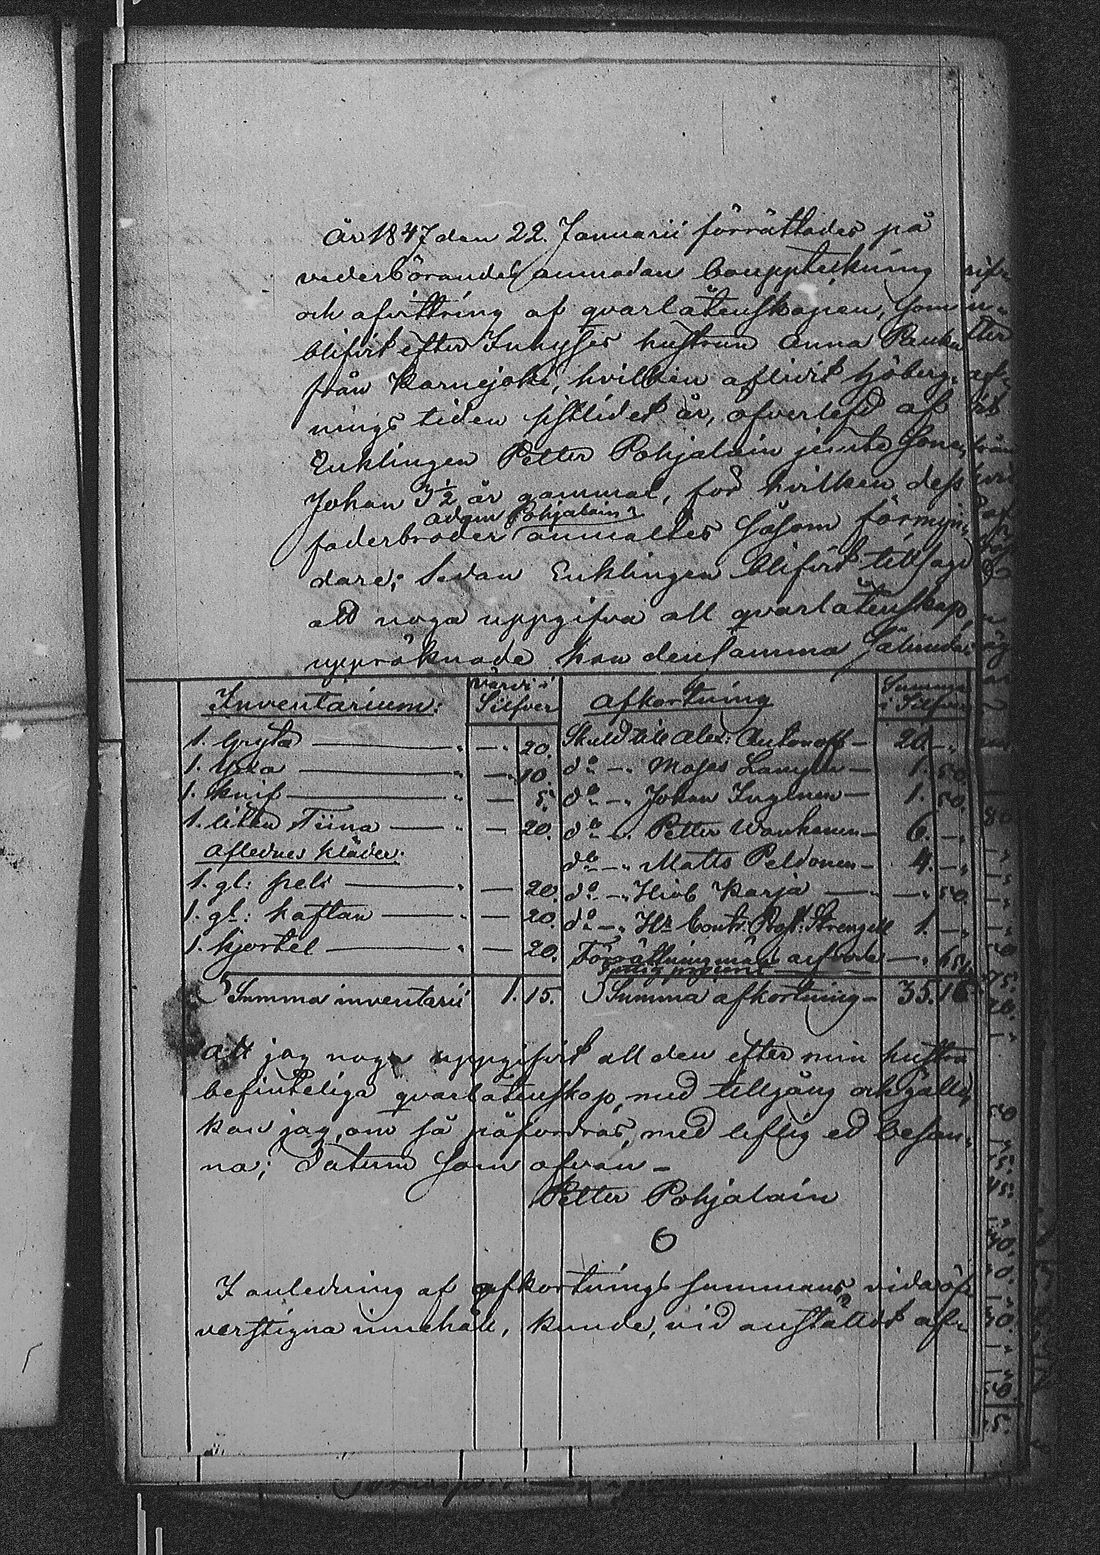 År 1847 den 22. Januarii förrättades på
vederbörandes anmodan bouppteckning
och afvittring af qvarlåtenskapen, som
blifvit efter Inhyses hustrun Anna
från hvilken aflidit höberg-
nings tiden sistlidet år, öfverlefd af
Enklingen Petter Pohjalain jemte sonen,
Johan 3½ år gammal, för hvilken dess
Adam Pohjalain
faderbroder anmältes såsom förmyn-
dare; Sedan Enklingen blifvit tillsagd
att noga uppgifva all qvarlåtenskap,
uppräknade han densamma sålunda:
Inventarium: värde i Silfver
1. Gryta — — 20.
1. Yxa — — 10.
1. Knif — — 5.
1. liten Tiina — — 20.
Aflednes kläder:
1. gl: pels — — 20.
1. gl: kaftan — — 20.
1. kjortel — — 20.
Summa inventarii 1. 15.
Afkortning Summa i Silfver
Skuld till Alex: Antonoff — 20. —
do — Moses — 1. 50.
do — Johan Inginen — 1. 50.
do — Petter Wanhanen — 6. —
do — Matts Peldonen — 4. —
do — Hiob Karja — — 50.
do — Hr Contr: Strengell 1. —
Förrättningsmäns arfvode —
Summa afkortning — 35. 15
Att jag noga uppgifvit all den efter min hustru
befinteliga qvarlåtenskap, med tillgång och gäld,
kan jag, om så påfordras, med liflig ed besan-
na; Datum som ofvan —
Petter Pohjalain
I anledning af afkortnings summans vida öf-
verstigna innehåll, kunde, vid anstäldt af-